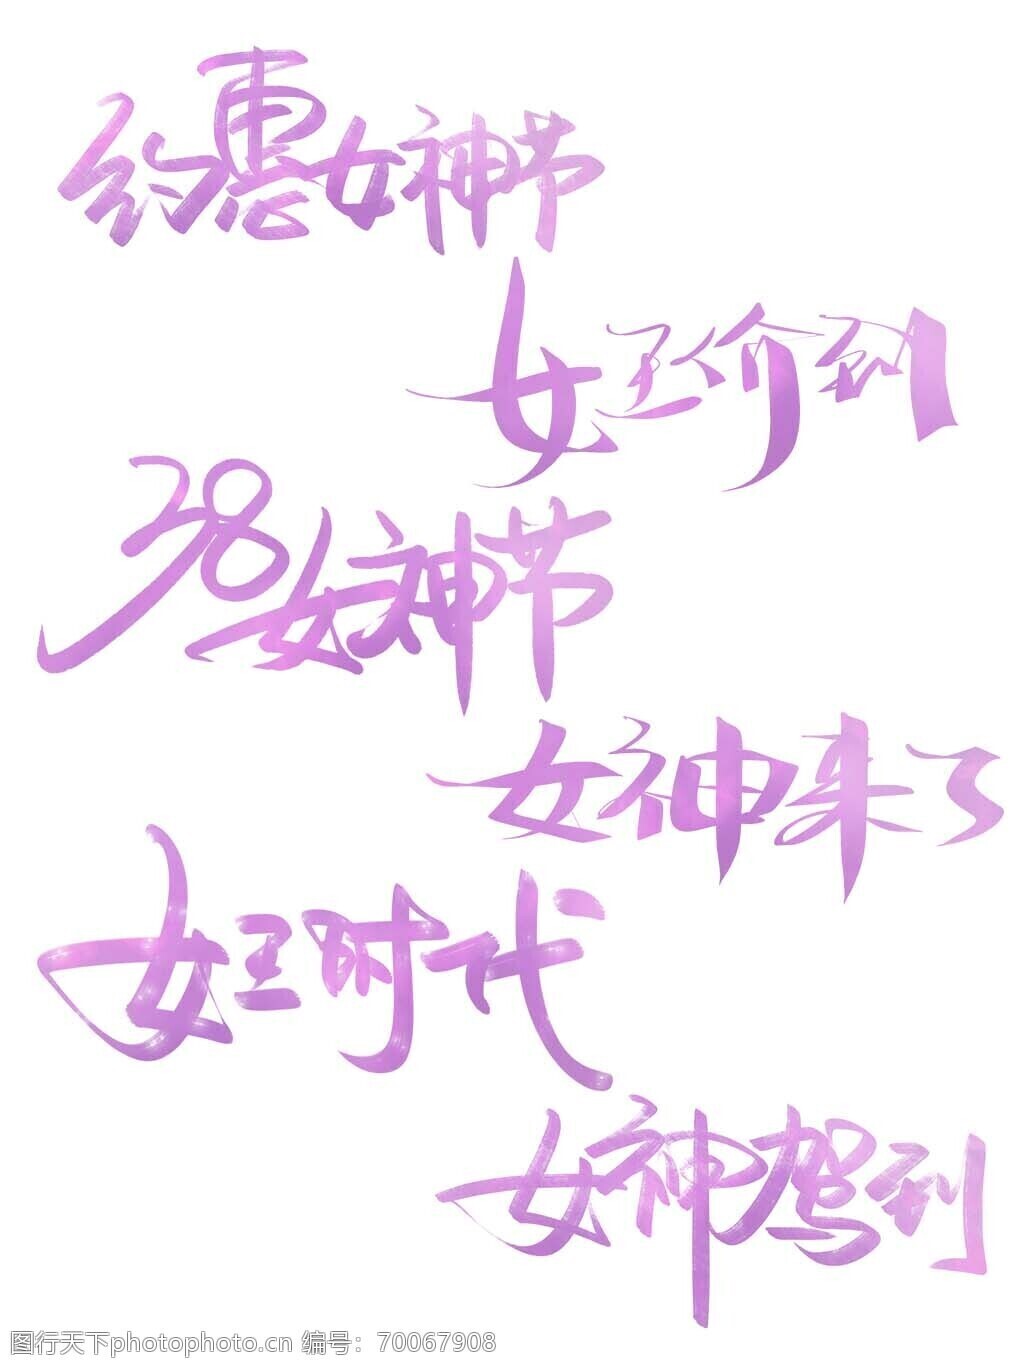 约惠女神节
女王价到
38女神节
女神来了
女王时代
女神驾到
图行天下photophoto.cn 编号：70067908